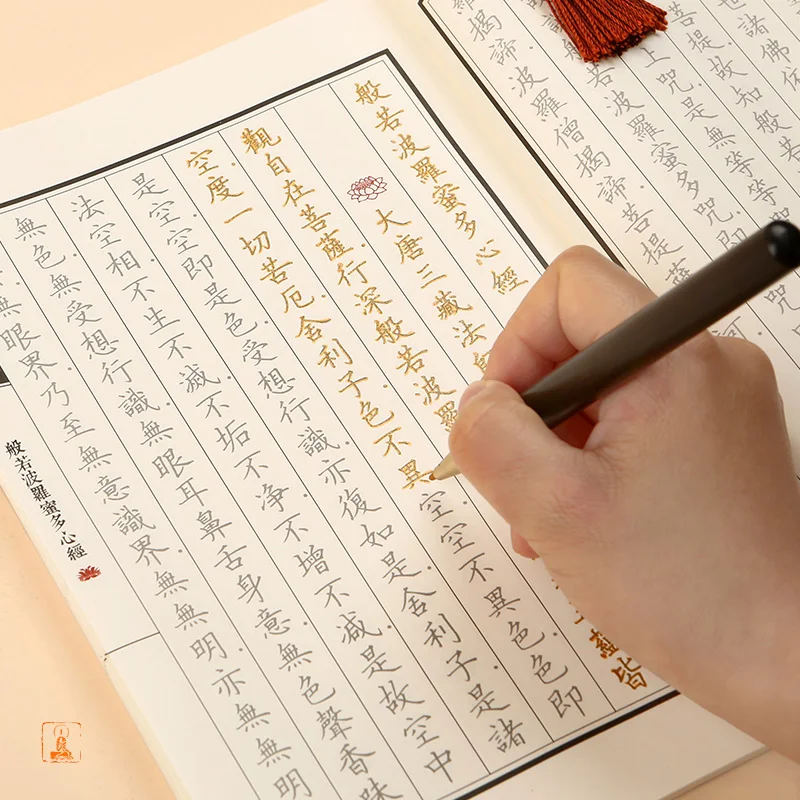 世諸佛
菩提故知般若
上咒是無等等
若波羅蜜多咒即
羅揭諦波羅僧揭諦菩提薩
般若波羅蜜多心經
大唐三藏法
觀自在菩薩行深般若波羅蘊皆
空度一切苦厄舍利子色不異空空不異色色即
是空空即是色受想行識亦復如是舍利子是諸
法空相不生不滅不垢不净不增不減是故空中
無色無受想行識無眼耳鼻舌身意無色聲香味
無眼界乃至無意識界無無明亦無無明
般若波羅蜜多心經